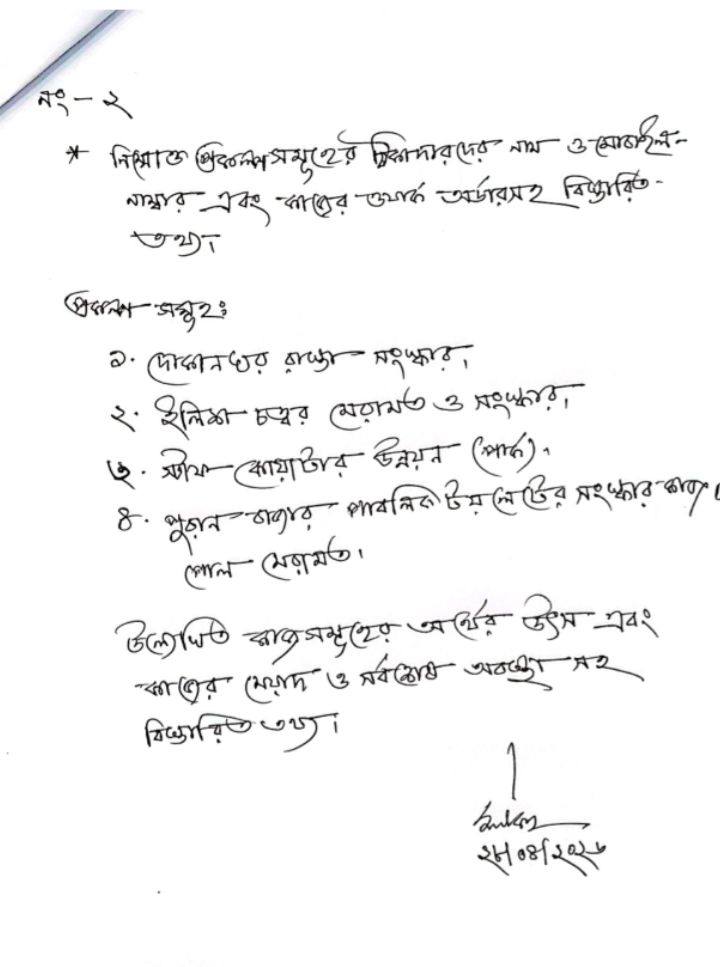 নং - ২
* নিম্নোক্ত প্রকল্পসমূহের ঠিকাদারদের নাম ও মোবাইল-
নাম্বার এবং কাজের ওয়ার্ক অর্ডারসহ বিস্তারিত-
তথ্য।
প্রকল্প সমূহঃ
১. দোকানঘর রাস্তা সংস্কার,
২. ইলিশা চত্বর মেরামত ও সংস্কার,
৩. স্টাফ কোয়াটার উন্নয়ন (পার্ক),
৪. পুরান বাজার পাবলিক টয়লেটের সংস্কার কাজ
পোল মেরামত।
উল্লেখিত কাজসমূহের অর্থের উৎস এবং
কাজের মেয়াদ ও সর্বশেষ অবস্থা সহ
বিস্তারিত তথ্য।
২৮/০৪/২০২৬